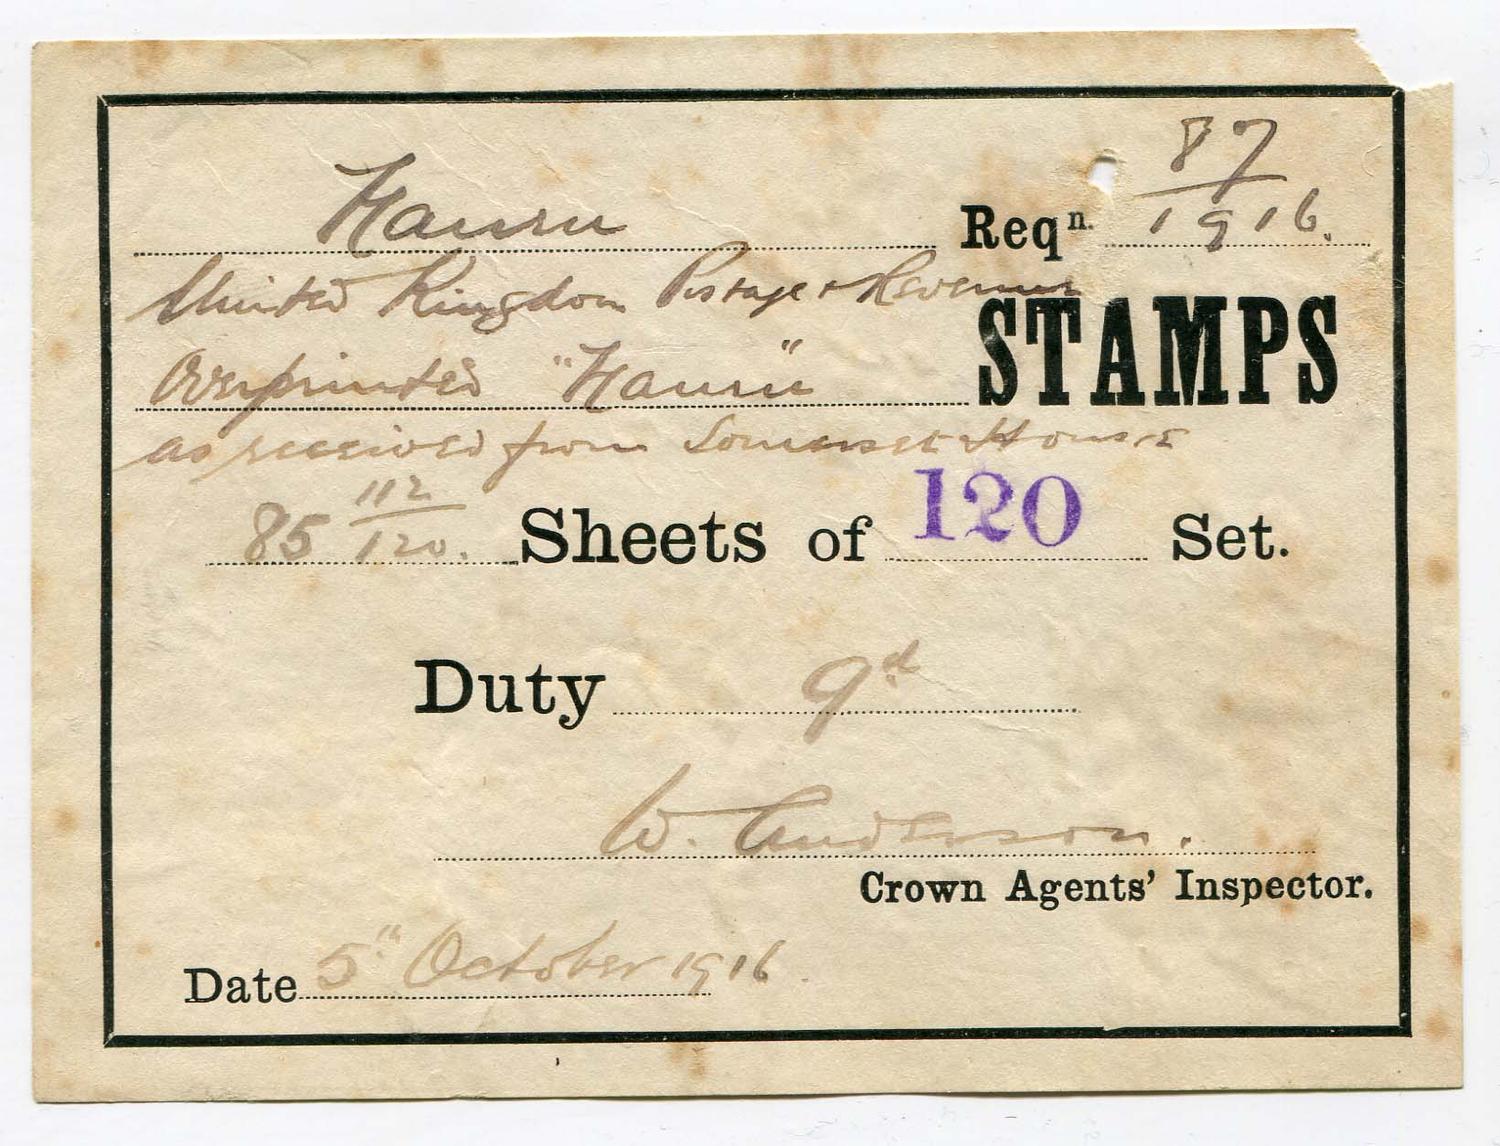 Nauru Reqn. 87/1916.
United Kingdom Postage & Revenue
Overprinted "Nauru" STAMPS
as received from Somerset House
85 112/120. Sheets of 120 Set.
Duty 9d
W. Anderson.
Crown Agents' Inspector.
Date 5th October 1916.